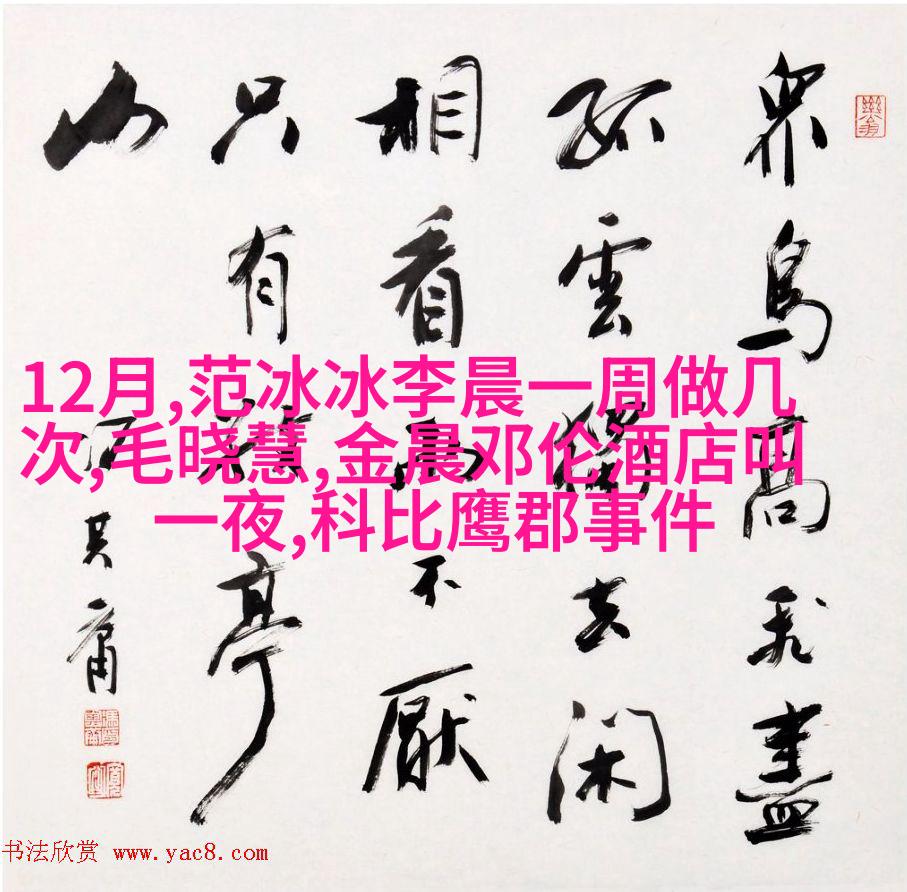 眾鳥高飛盡
孤雲獨去閑
相看兩不厭
只有敬亭
山
馮其庸
12月,范冰冰李晨一周做几
次,毛晓慧,金晨邓伦酒店叫
一夜,科比鹰郡事件
书法欣赏 www.yac8.com